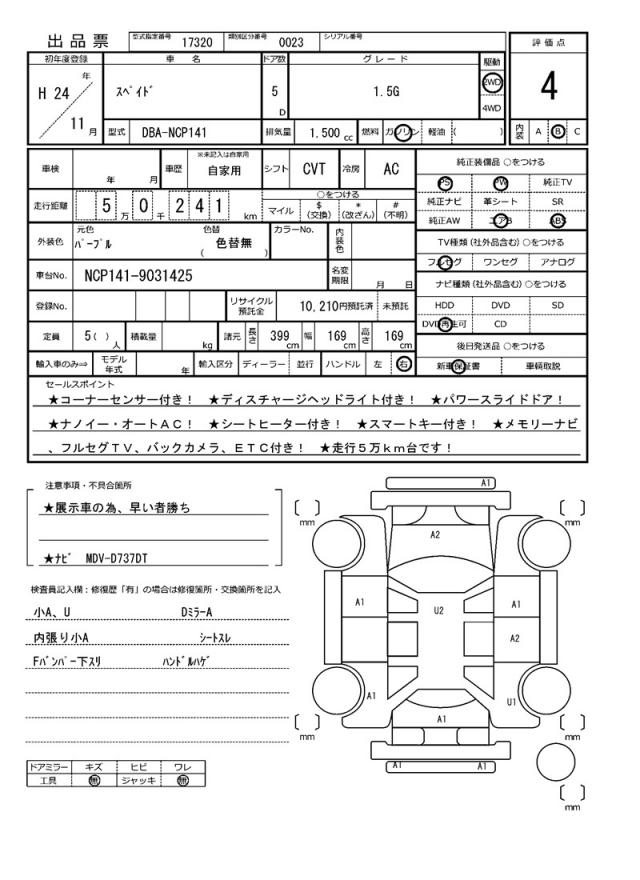 出品票 型式指定番号 17320 類別区分番号 0023 シリアル番号
評価点
4
内装 A B C
初年度登録 車名 ドア数 グレード 駆動
H 24 年 11 月 スペイド 5 D 1.5G 2WD 4WD
型式 DBA-NCP141 排気量 1.500 cc 燃料 ガソリン 軽油 ( )
車検 年 月 車歴 ※未記入は自家用 自家用 シフト CVT 冷房 AC
走行距離 5 万 0 千 2 4 1 km ○をつける
マイル $(交換) *(改ざん) #(不明)
外装色 元色 パープル 色替 色替無 ( ) カラーNo. 内装色
車台No. NCP141-9031425 名変期限 月 日
登録No. リサイクル預託金 10,210円預託済 未預託
定員 5( ) 人 積載量 kg 諸元 長さ 399 cm 幅 169 cm 高さ 169 cm
輸入車のみ⇒ モデル年式 年 輸入区分 ディーラー 並行 ハンドル 左 右
純正装備品 ○をつける
PS PW 純正TV
純正ナビ 革シート SR
純正AW エアB ABS
TV種類(社外品含む)○をつける
フルセグ ワンセグ アナログ
ナビ種類(社外品含む)○をつける
HDD DVD SD
DVD再生可 CD
後日発送品 ○をつける
新車保証書 車輌取説
セールスポイント
★コーナーセンサー付き! ★ディスチャージヘッドライト付き! ★パワースライドドア!
★ナノイー・オートAC! ★シートヒーター付き! ★スマートキー付き! ★メモリーナビ
、フルセグTV、バックカメラ、ETC付き! ★走行5万km台です!
注意事項・不具合箇所
★展示車の為、早い者勝ち
★ナビ MDV-D737DT
検査員記入欄:修復歴「有」の場合は修復箇所・交換箇所を記入
小A、U DミラーA
内張り小A シートスレ
Fバンパー下スリ ハンドルハゲ
ドアミラー キズ ヒビ ワレ
工具 無 ジャッキ 無
A1
[ ] mm [ ] mm
A2
A1 U2 A1
A2
A1 U1
A1
[ ] mm [ ] mm
A1 A1
[ ] mm